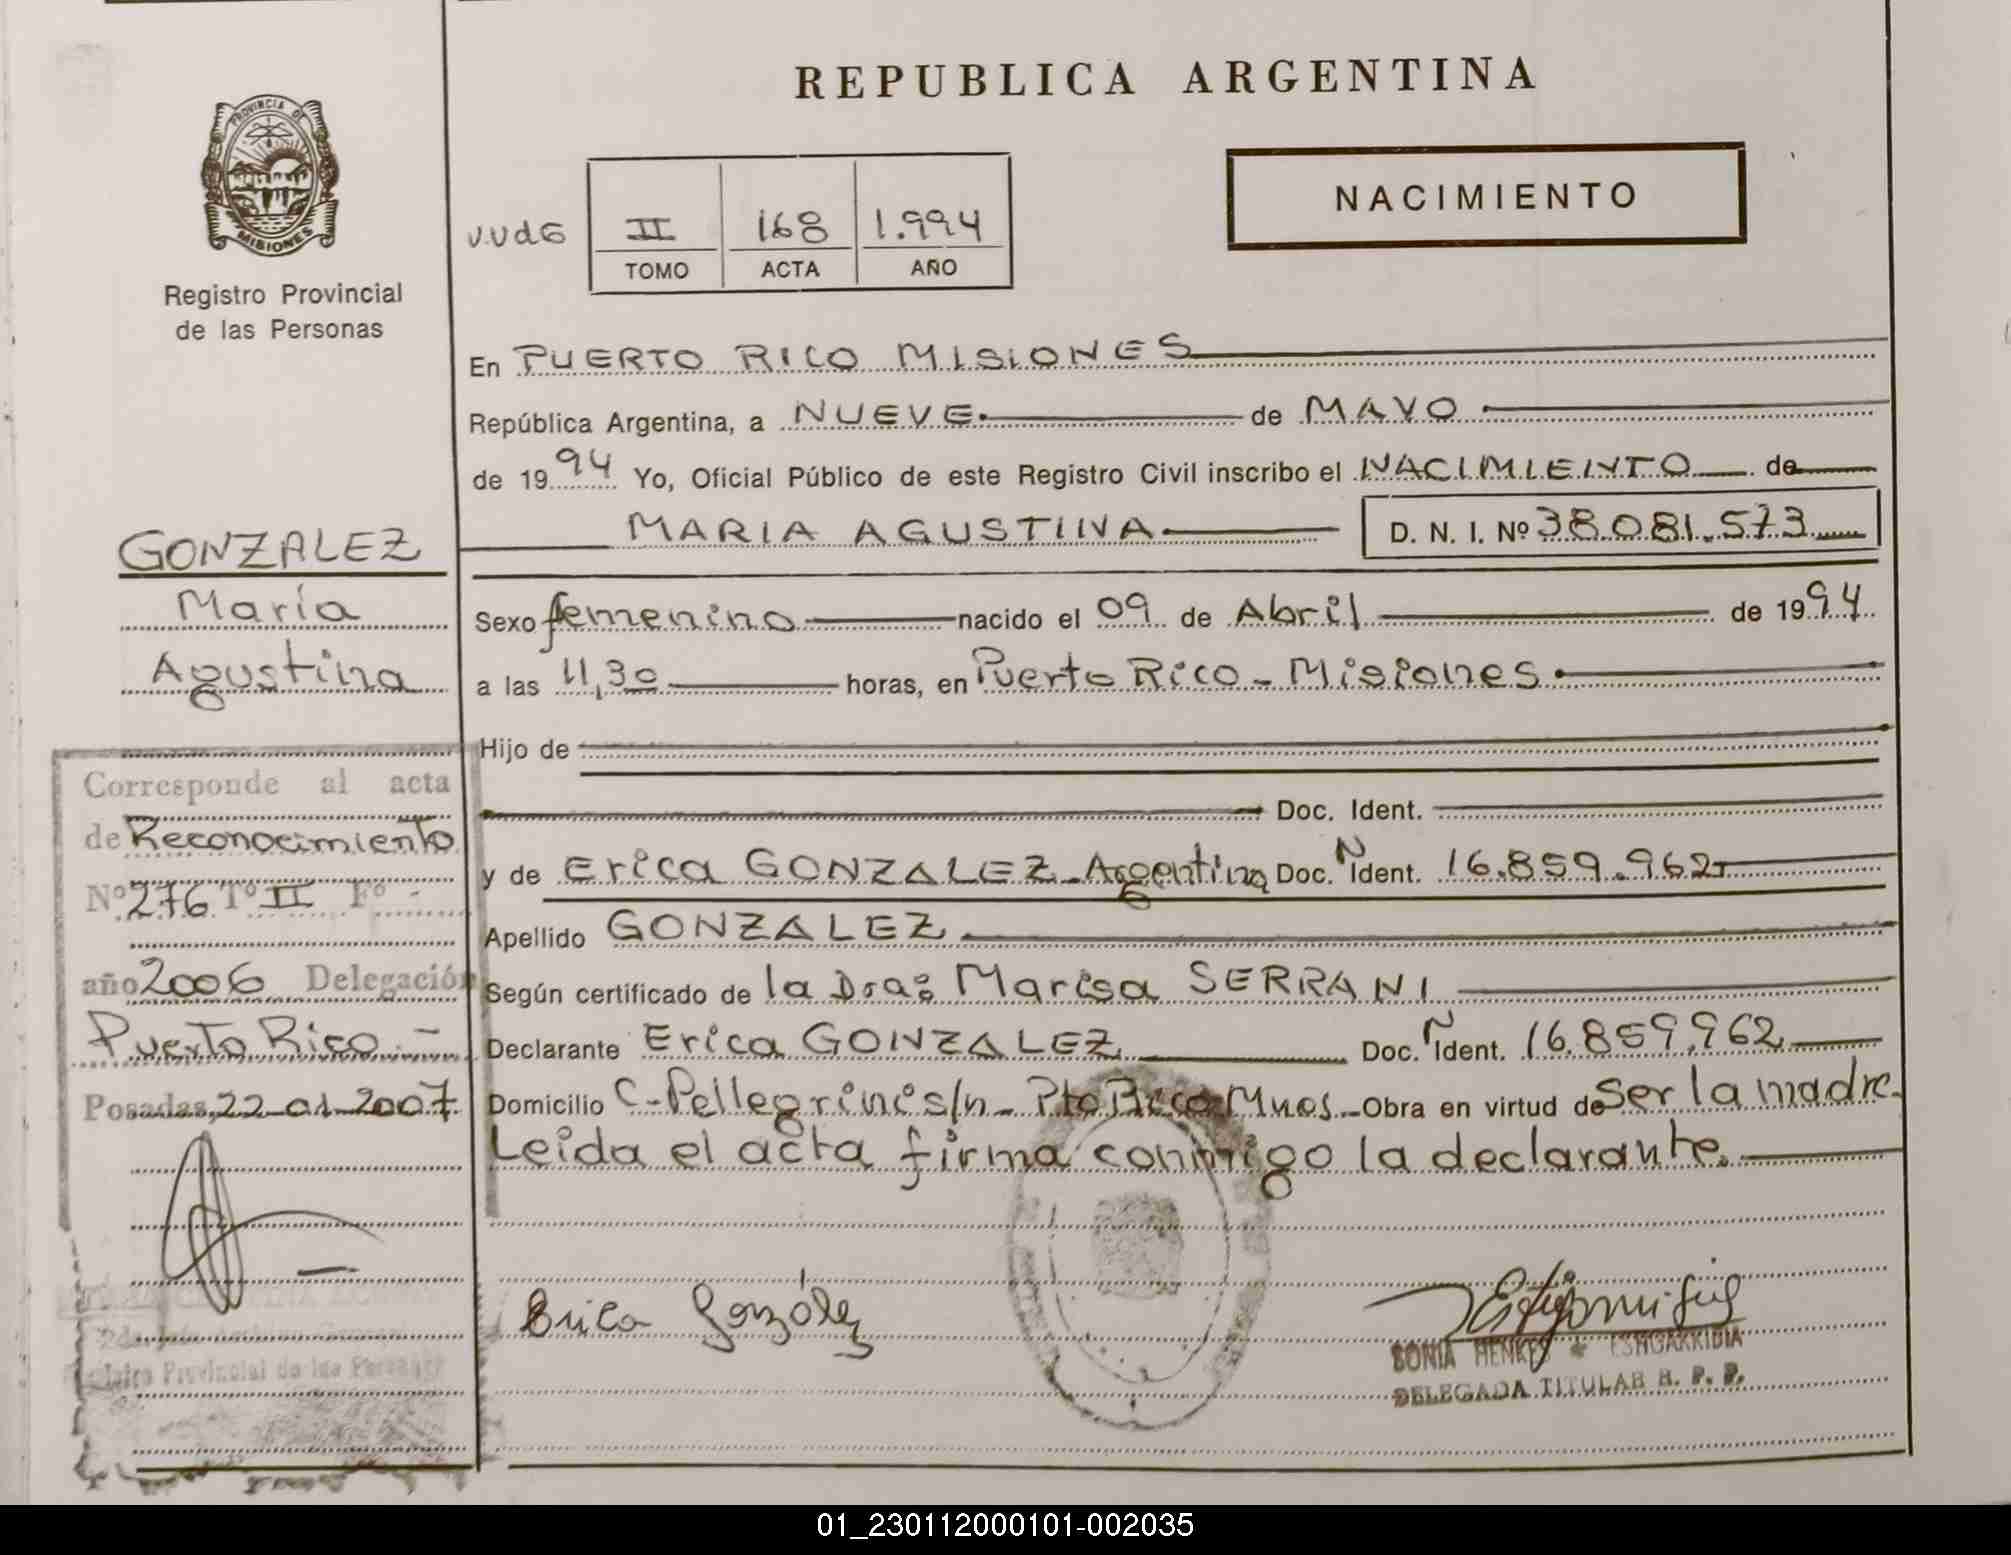 REPUBLICA ARGENTINA
PROVINCIA DE
MISIONES
Registro Provincial
de las Personas
NACIMIENTO
II 168 1.994
TOMO ACTA AÑO
En PUERTO RICO MISIONES
República Argentina, a NUEVE de MAYO
de 1994 Yo, Oficial Público de este Registro Civil inscribo el NACIMIENTO de
MARIA AGUSTINA D. N. I. Nº 38.081.573
Sexo femenino nacido el 09 de Abril de 1994
a las 11,30 horas, en Puerto Rico - Misiones
Hijo de
Doc. Ident.
y de Erica GONZALEZ - Argentina Doc. N Ident. 16.859.962
Apellido GONZALEZ
Según certificado de la Dra: Marisa SERRANI
Declarante Erica GONZALEZ Doc. N Ident. 16.859.962
Domicilio C. Pellegrini s/n - Pto Rico Mnes. - Obra en virtud de Ser la madre.
Leida el acta firma conmigo la declarante.
Erica González
SONIA HENKES
DELEGADA TITULAR R. P. P.
GONZALEZ
María
Agustina
Corresponde al acta
de Reconocimiento
Nº 276 Tº II Fº -
año 2006 Delegación
Puerto Rico -
Posadas, 22-01-2007
Provincial de las Personas
01_230112000101-002035